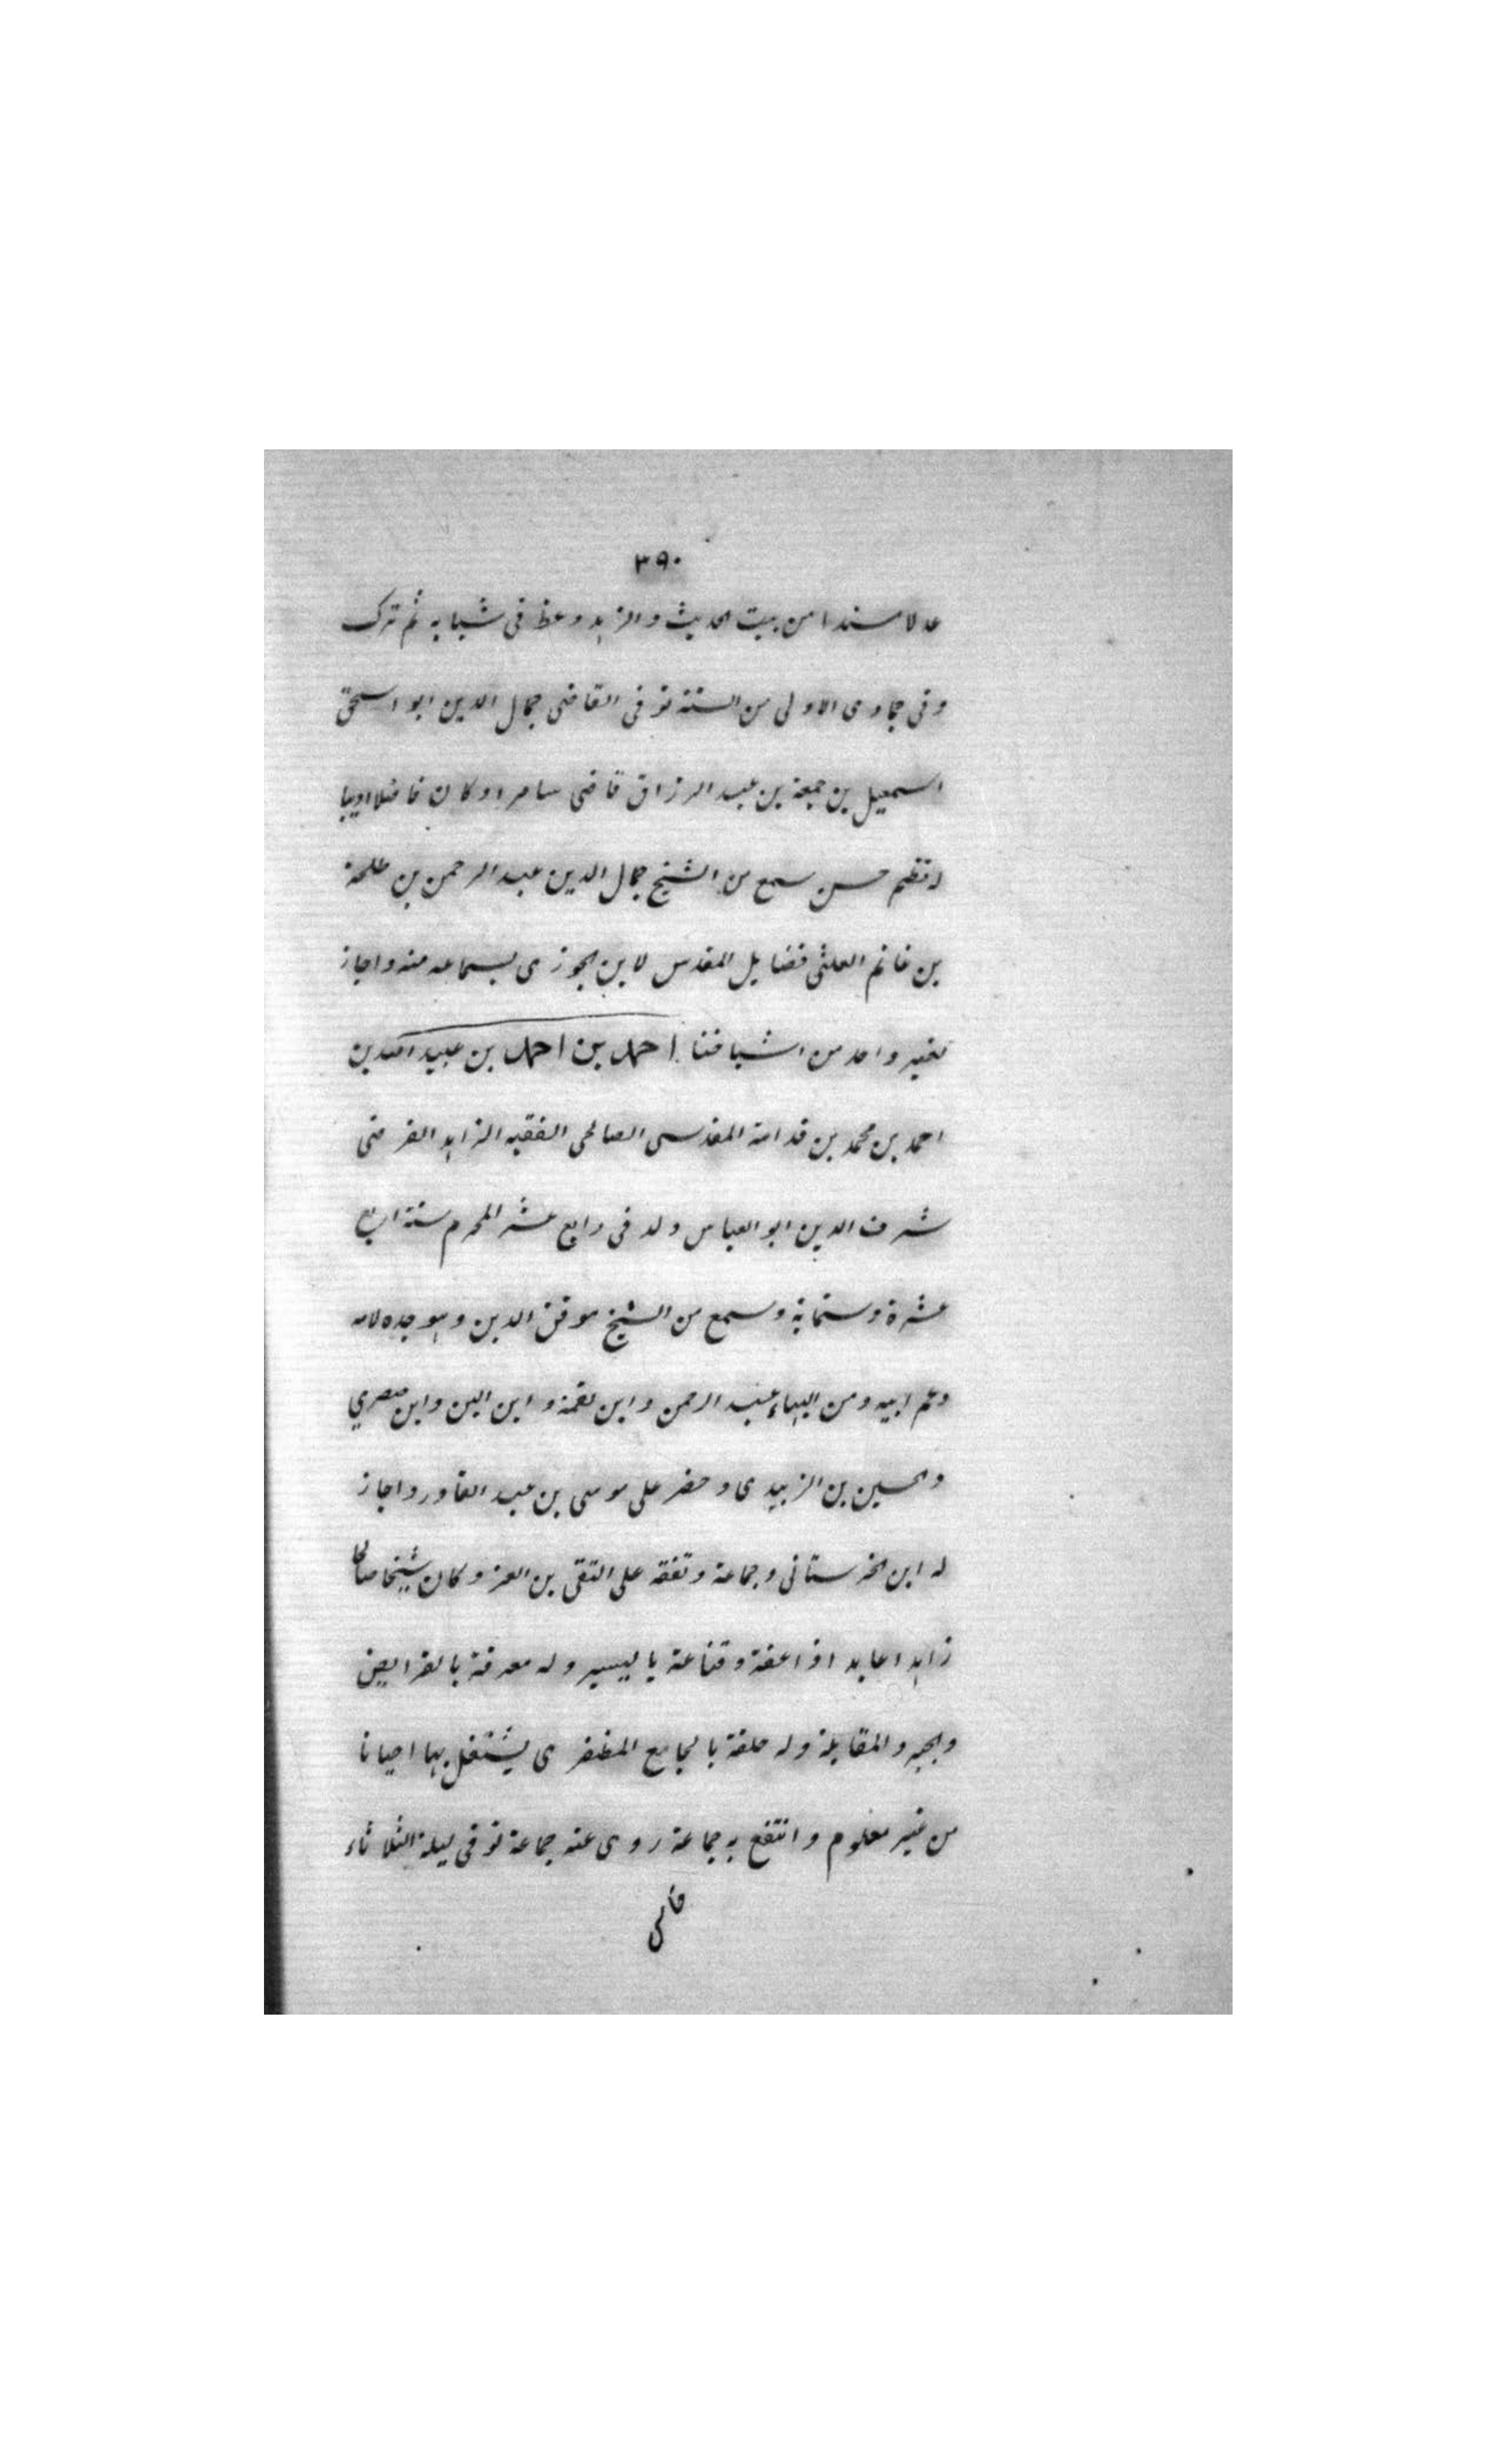 ٣٩٠
عدلا مسندا من بيت الحديث والزهد وعظ فى شبابه ثم ترك
وفى جمادى الاولى من السنة توفى القاضى جمال الدين ابو اسحق
اسمعيل بن جمعة بن عبد الرزاق قاضى سامرا وكان فاضلا اديبا
له نظم حسن سمع من الشيخ جمال الدين عبد الرحمن بن طلحة
بن غانم العلثى فضايل القدس لابن الجوزى بسماعه منه واجاز
لغير واحد من اشياخنا احمد بن احمد بن عبيد الله بن
احمد بن محمد بن قدامة المقدسى الصالحى الفقيه الزاهد الفرضى
شرف الدين ابو العباس ولد فى رابع عشر المحرم سنة اربع
عشرة وستماية وسمع من الشيخ موفق الدين وهو جده لامه
وعم ابيه ومن البهاء عبد الرحمن وابن نقمة و ابن البن وابن صصري
والحسين بن الزبيدى و حضر على موسى بن عبد القادر واجاز
له ابن الحرستانى وجماعة وتفقه على التقى بن العز وكان شيخا صالحا
زاهدا عابدا ذا عفة وقناعة باليسير وله معرفة بالفرايض
والجبر والمقابلة وله حلقة بالجامع المظفرى يشتغل بها احيانا
من غير معلوم وانتفع به جماعة روى عنه جماعة توفى ليلة الثلاثاء